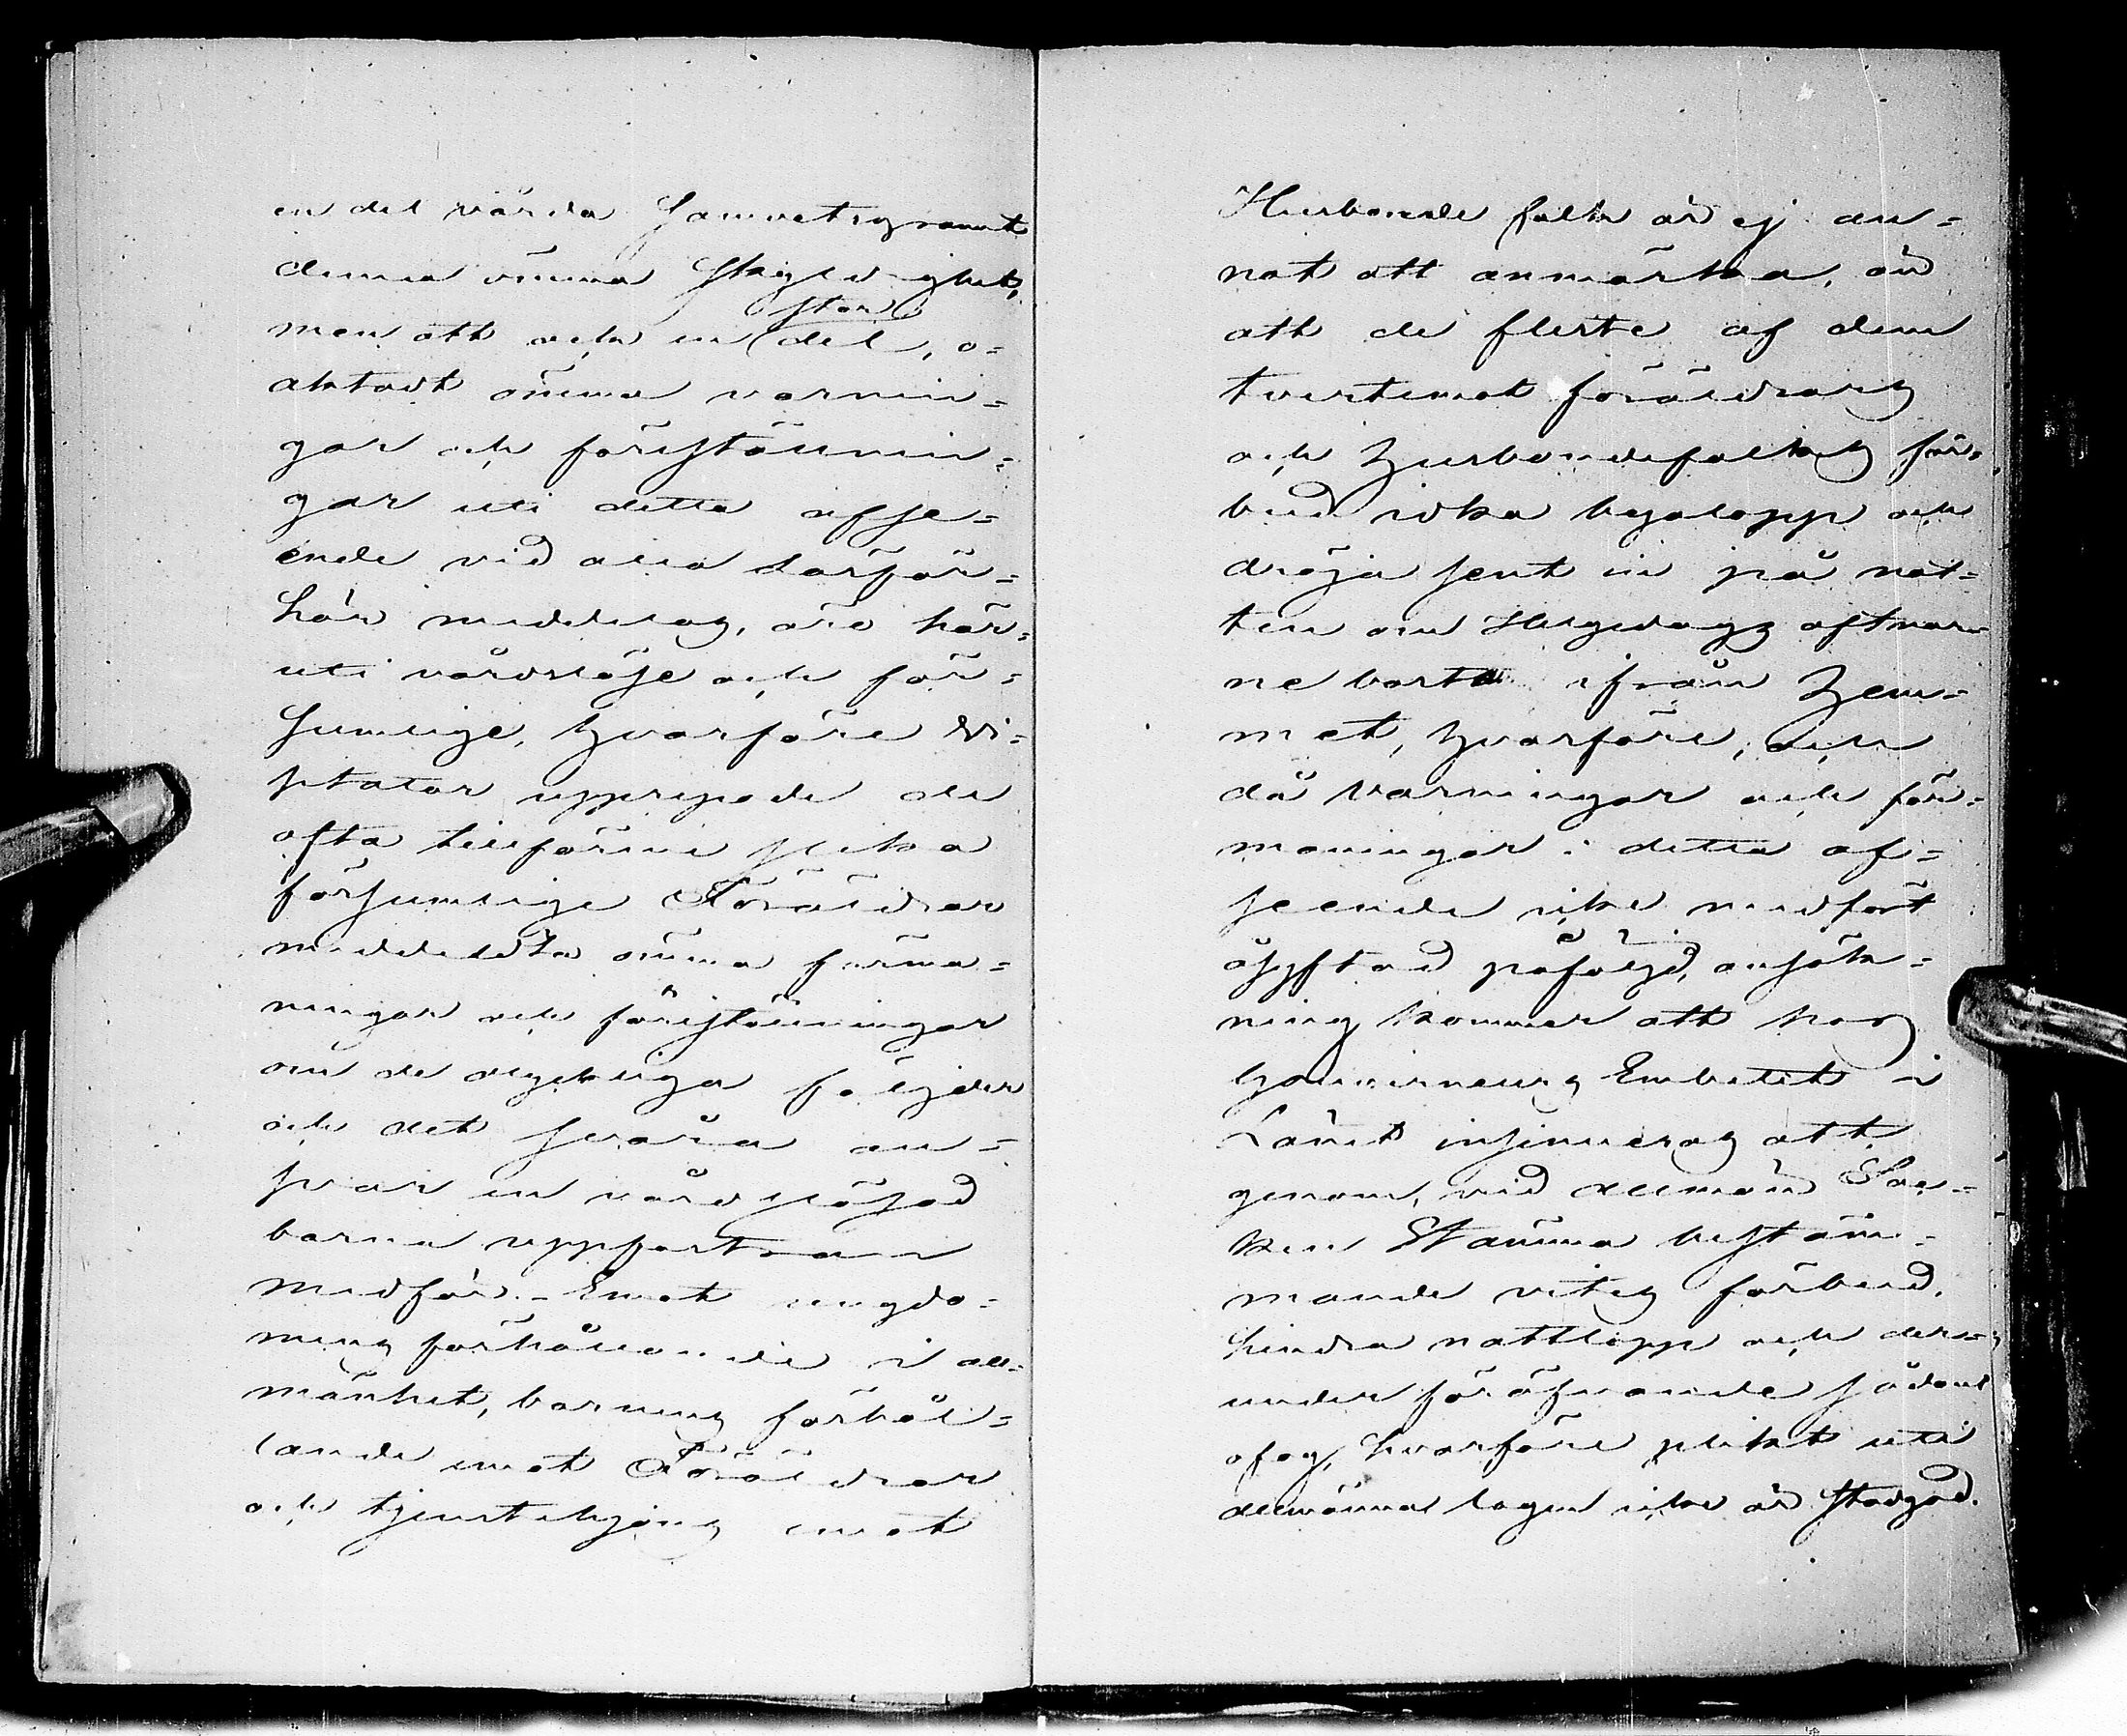 en del vårda samvetsgrannt
denna ömma skyldighet,
stor
men att och en del, o-
aktadt ömma varnin-
gar och föreställnin-
gar uti detta afse-
ende vid alla läsför-
hör meddelas, äro här-
uti vårdslöse och för-
sumlige, hvarföre Vi-
sitator upprepade de
ofta tillförene slika
försumlige Föräldrar
meddelta ömma förma-
ningar och föreställningar
om de olyckliga följder
och det svåra an-
svar en vårdslösad
barna uppfostran
medför. - Emot ungdo-
mens förhållande i all-
mänhet, barnens förhål-
lande emot Föräldrar
och tjenstehjons emot
Husbonde folk är ej an-
nat att anmärka, än
att de fleste af dem
tvertemot föräldrars
och husbondefolkets för-
bud idka byalopp och
dröja sent in på nat-
ten om Helgedags aftnar-
ne borta ifrån hem-
met, hvarföre, och
då varningar och för-
maningar i detta af-
seende icke medfört
åsyftad påföljd, ansök-
ning kommer att hos
Gouverneurs Embetet i
Länet insinueras att
genom, vid allmän Soc-
ken Stämma bestäm-
mande vites förbud,
hindra nattlopp och der-
under föröfvande sådant
ofog, hvarföre plikt uti
allmänna lagen icke är stadgad.